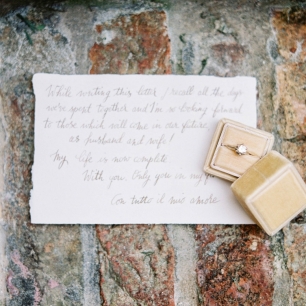 While writing this letter I recall all the days
we've spent together and I'm so looking forward
to those which will come in our future
as husband and wife!
My life is now complete.
With you. Only you in my
Con tutto il mio amore